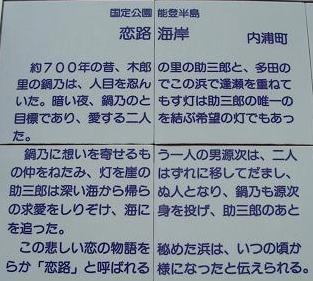 国定公園 能登半島
恋路海岸 内浦町
約７００年の昔、木郎の里の助三郎と、多田の
里の鍋乃は、人目を忍んでこの浜で逢瀬を重ねて
いた。暗い夜、鍋乃のともす灯は助三郎の唯一の
目標であり、愛する二人を結ぶ希望の灯でもあっ
た。
鍋乃に想いを寄せるもう一人の男源次は、二人
の仲をねたみ、灯を崖のはずれに移してだまし、
助三郎は深い海から帰らぬ人となり、鍋乃も源次
の求愛をしりぞけ、海に身を投げ、助三郎のあと
を追った。
この悲しい恋の物語を秘めた浜は、いつの頃か
らか「恋路」と呼ばれる様になったと伝えられる。